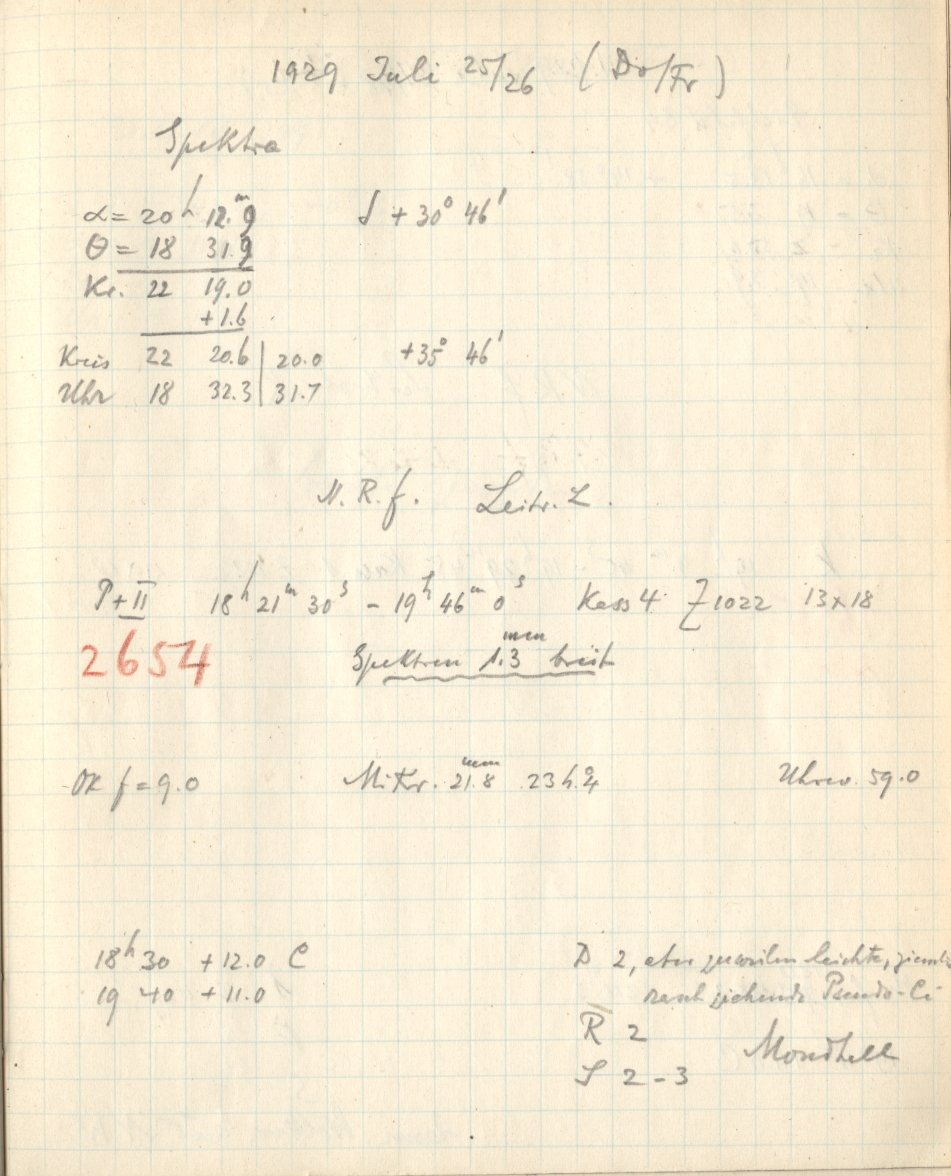 1929 Juli 25/26 (Do/Fr)
Spektra
α = 20h 12.m9 δ + 30° 46'
θ = 18 31.9
Kr. 22 19.0
+1.6
Kreis 22 20.6 | 20.0 +35° 46'
Uhr 18 32.3 | 31.7
N. R. f. Leitr. L.
P+II 18h 21m 30s - 19h 46m 0s Kass 4 Z 1022 13×18
2654 Spektren 1.3 mm breit
Ok f = 9.0 Mikr. 21.8 mm 23h.4 Uhrw. 59.0
18h 30 + 12.0 C D 2, aber zuweilen leichte, ziemlich
19 40 + 11.0 rasch ziehende Pseudo-Ci
R 2 Mondhell
S 2-3